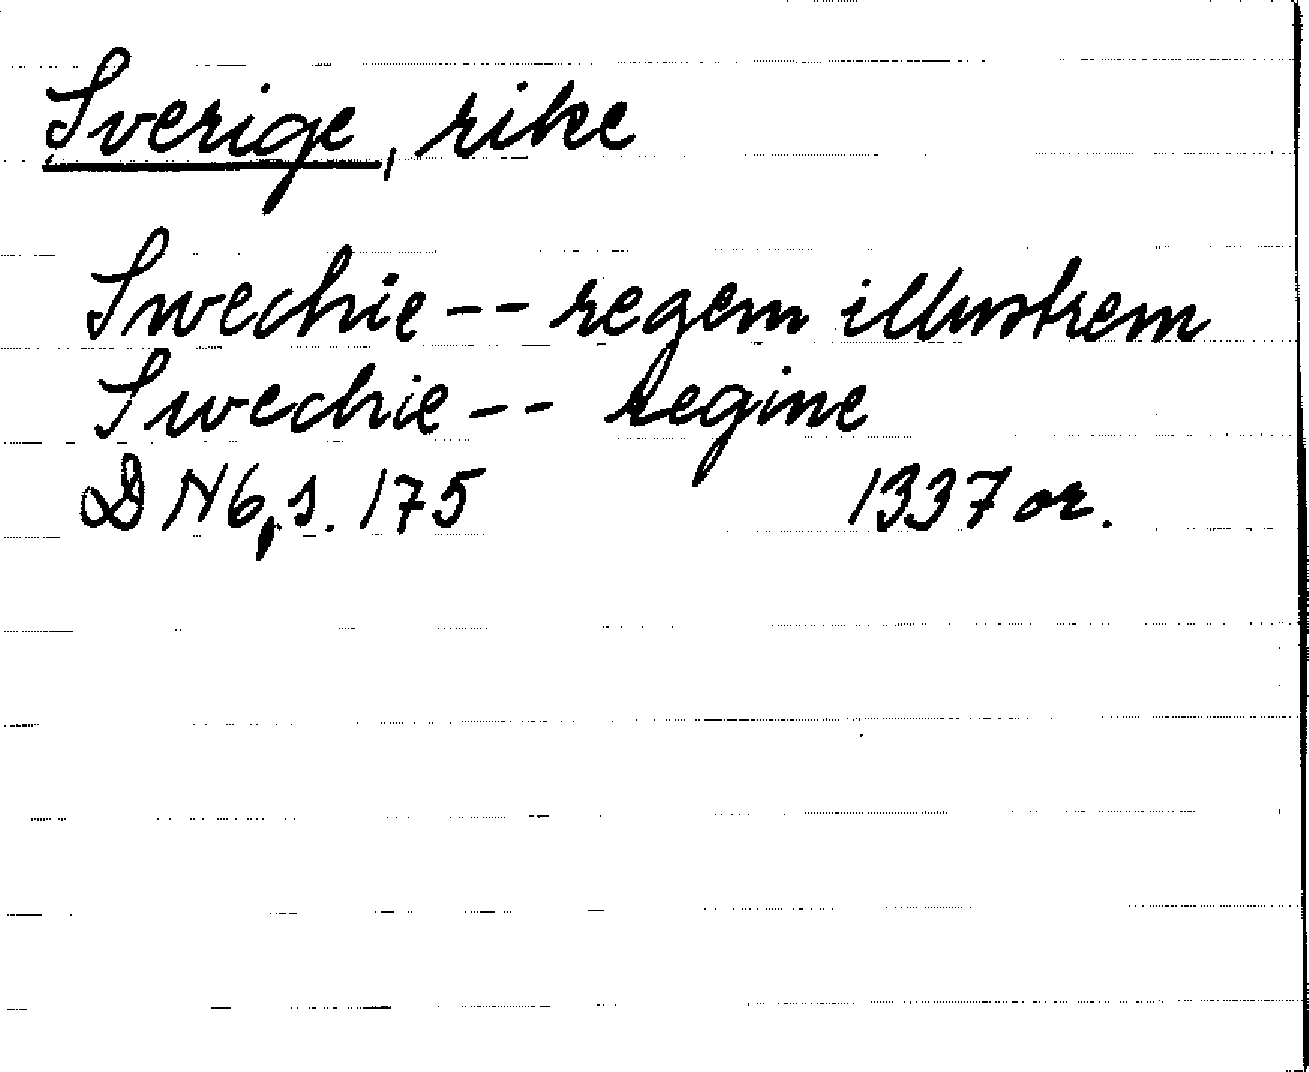 Sverige, rike
Swechie -- regem illustrem
Swechie -- regine
DN6, s. 175 1337 or.